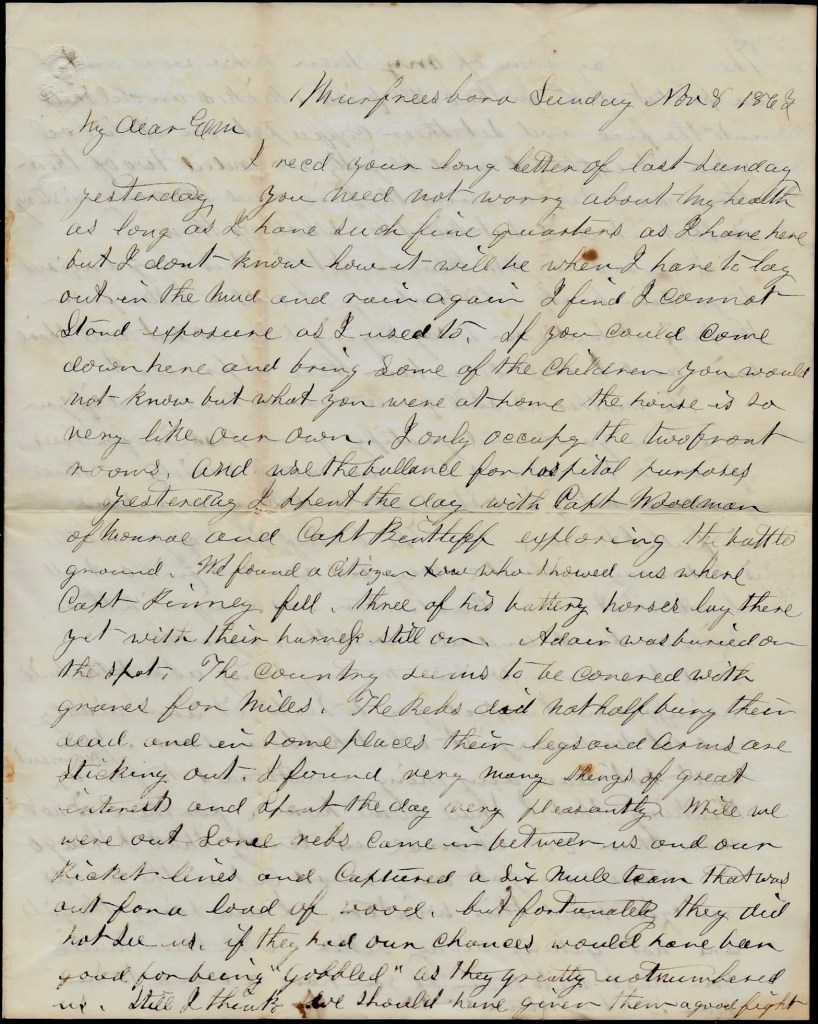 Murfreesboro Sunday Nov 8 1863
My dear Em
I recd your long letter of last Sunday
yesterday, you need not worry about my health
as long as I have such fine quarters as I have here
but I dont know how it will be when I have to lay
out in the mud and rain again I find I cannot
stand exposure as I used to. If you could come
down here and bring some of the children you would
not know but what you were at home the house is so
very like our own. I only occupy the two front
rooms. and use the ballance for hospital purposes
yesterday I spent the day with Capt Woodman
of Monroe and Capt Bintliff exploring the battle
ground. We found a citizen who showed us where
Capt Pinney fell. three of his battery horses lay there
yet with their harness still on. Adair was buried on
the spot. The country seems to be covered with
graves for miles. The Rebs did not half bury their
dead and in some places their legs and arms are
sticking out. I found very many things of great
interest and spent the day very pleasantly. While we
were out some rebs came in between us and our
Picket lines and captured a six mule team that was
out for a load of wood. but fortunately they did
not see us. if they had our chances would have been
good for being "gobbled" as they greatly outnumbered
us. Still I think we should have given them a good fight